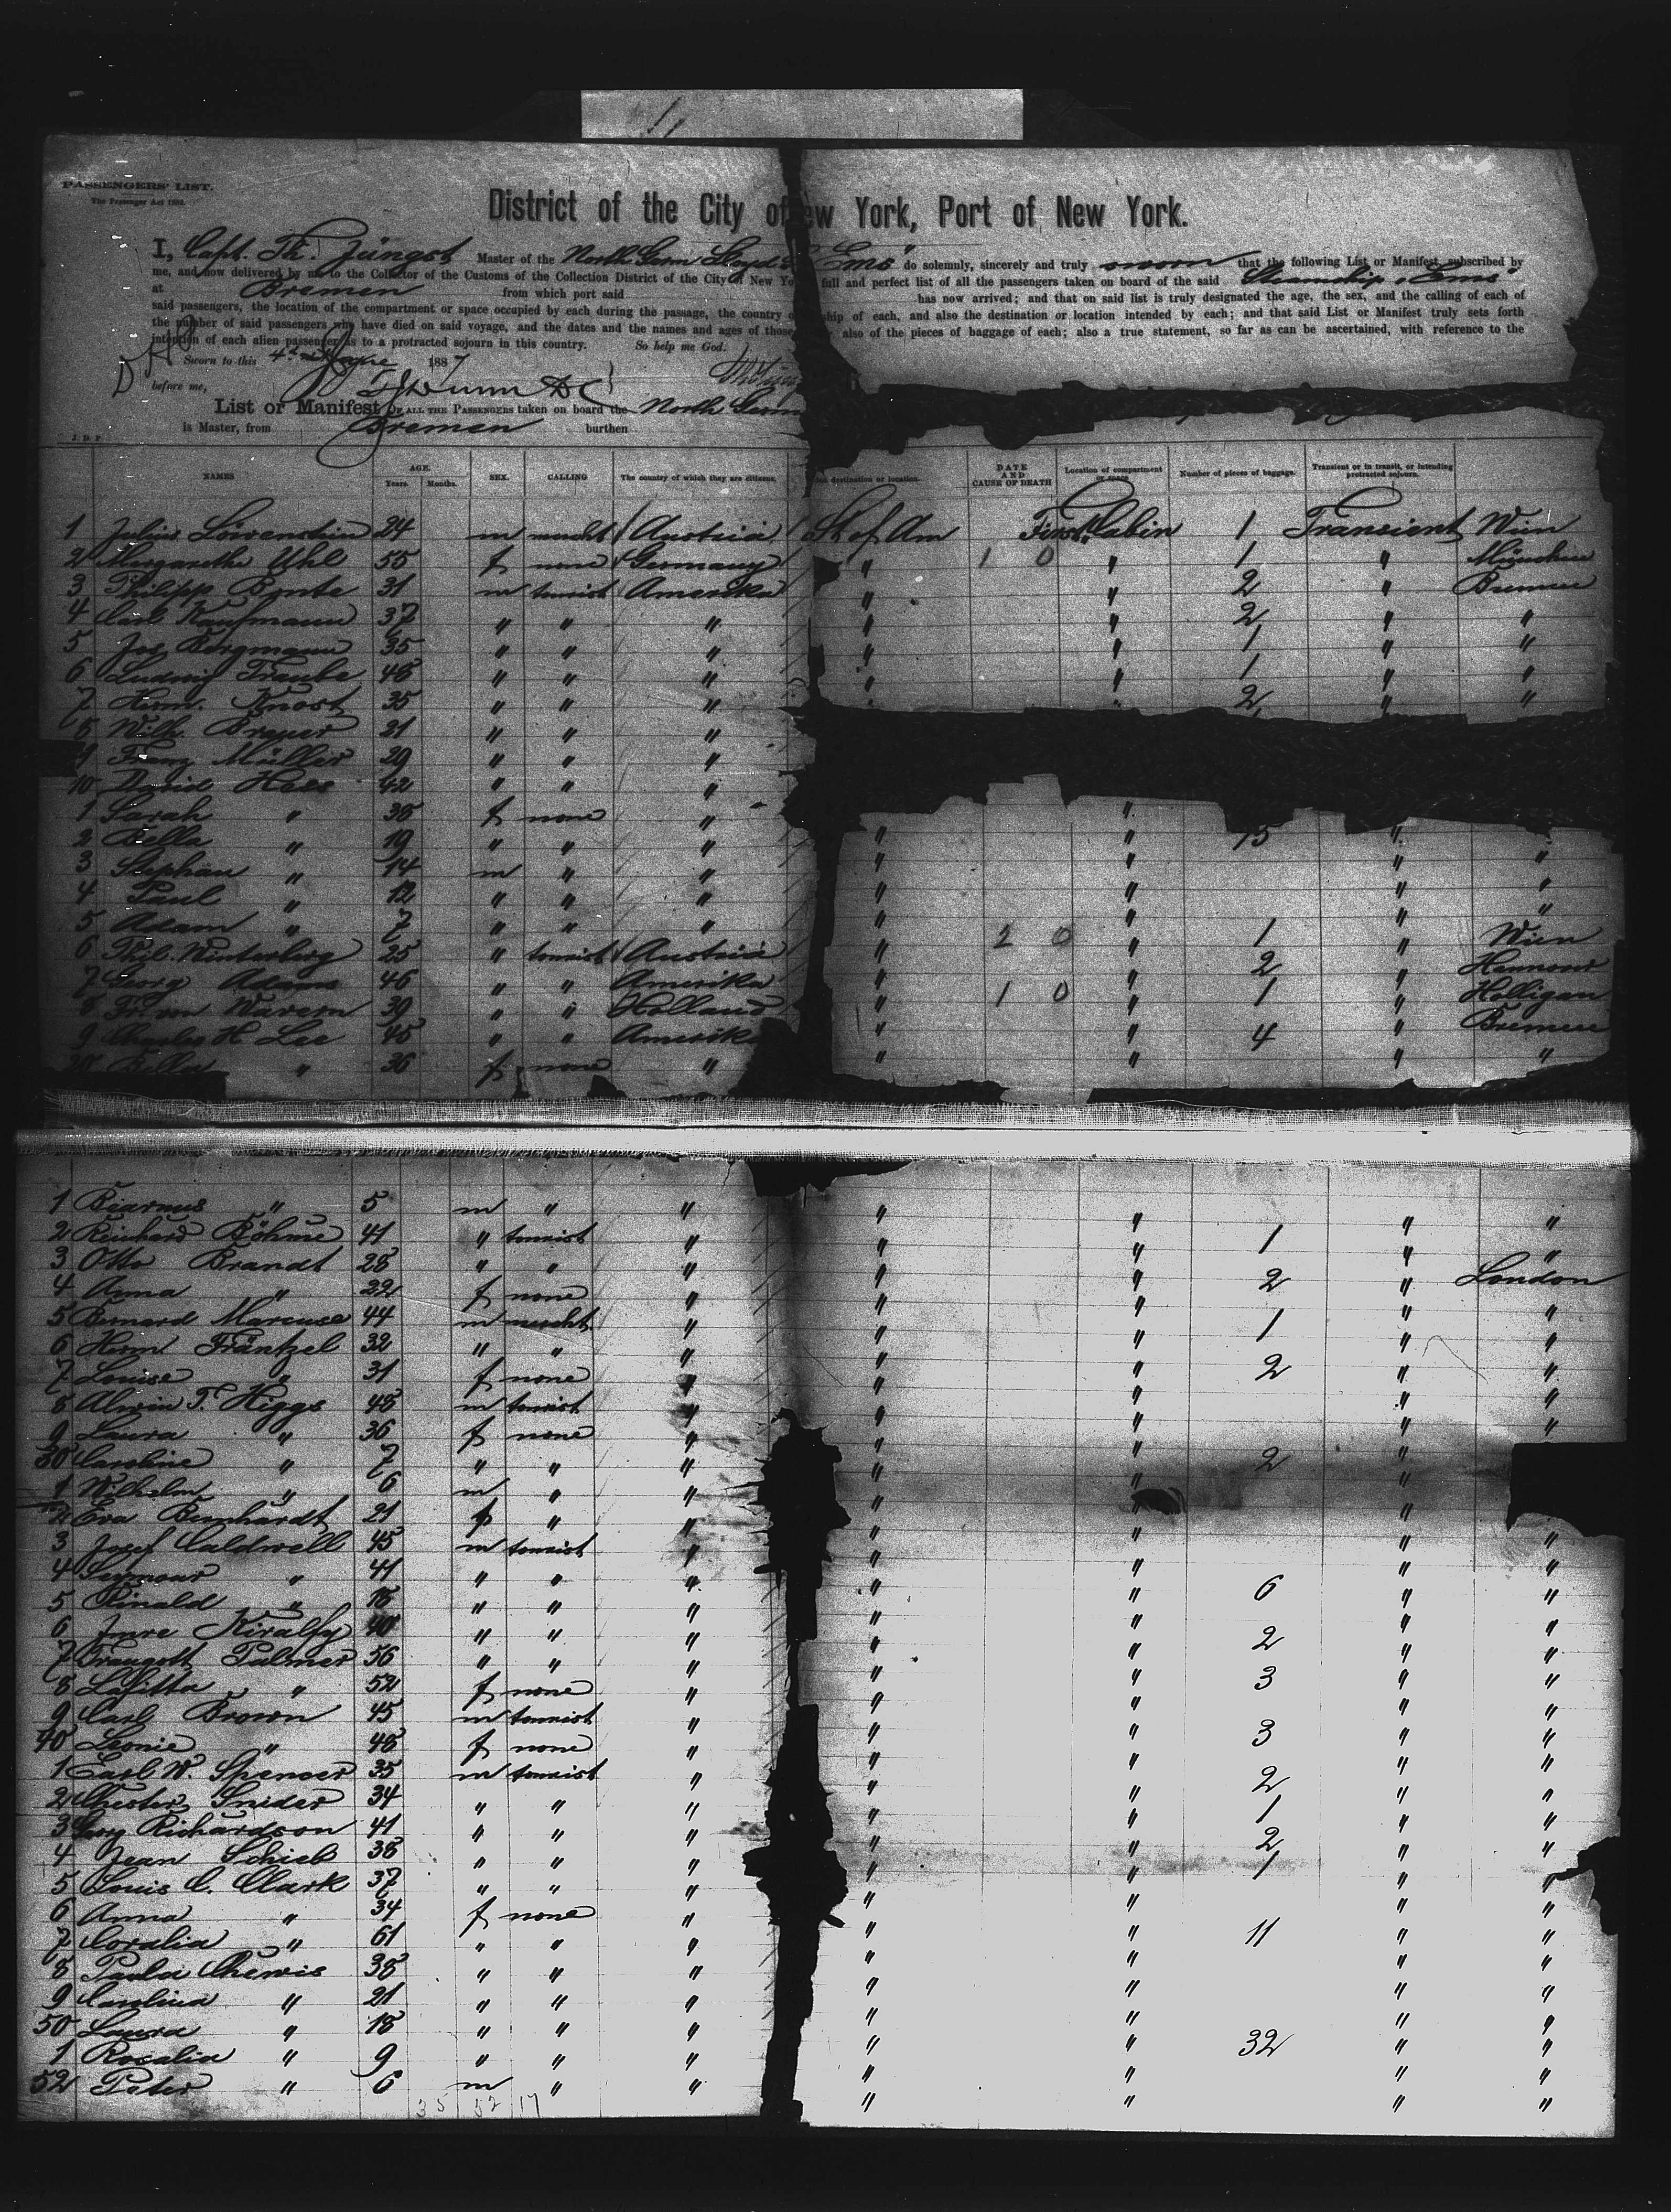 PASSENGERS' LIST.
District of the City of New York, Port of New York.
I, Capt. Th. Jüngst Master of the North Germ Lloyd's "Ems" do solemnly, sincerely and truly sworn that the following List or Manifest, subscribed by
me, and now delivered by me to the Collector of the Customs of the Collection District of the City of New Yo full and perfect list of all the passengers taken on board of the said Steamship "Ems"
at Bremen from which port said has now arrived; and that on said list is truly designated the age, the sex, and the calling of each of
said passengers, the location of the compartment or space occupied by each during the passage, the country o ship of each, and also the destination or location intended by each; and that said List or Manifest truly sets forth
the number of said passengers who have died on said voyage, and the dates and the names and ages of those also of the pieces of baggage of each; also a true statement, so far as can be ascertained, with reference to the
intention of each alien passenger as to a protracted sojourn in this country. So help me God.
Sworn to this 4th 1887
before me,
List or Manifest OF ALL THE PASSENGERS taken on board the North Germ
is Master, from Bremen burthen
J. D. P.
NAMES AGE. Years. Months. SEX. CALLING The country of which they are citizens. destination or location. DATE AND CAUSE OF DEATH Location of compartment or space Number of pieces of baggage. Transient or in transit, or intending protracted sojourn.
1 Julius Löwenstein 24 m mercht Austria St of Am First Cabin 1 Transient Wien
2 Margarethe Uhl 55 f none Germany " 1 0 " 1 " München
3 Philipp Bonte 31 m tourist Amerika " 2 " Bremen
4 Carl Kaufmann 37 " " " " " 2 " "
5 Jos. Bergmann 35 " " " " " 1 " "
6 Ludwig Traube 48 " " " " " 1 " "
7 Herm. Knost 35 " " " " " 2 " "
8 Wilh. Breuer 21 " " "
9 Franz Müller 29 " " "
10 David Hess 42 " " "
1 Sarah " 38 f none " "
2 Bella " 19 " " " " " 15 " "
3 Stephan " 14 m " " " " " "
4 Paul " 12 " " " " " " "
5 Adam " 7 " " " " " "
6 Phil. Winterberg 25 " tourist Austria " 2 0 " 1 " Wien
7 Georg Adams 46 " " Amerika " " 2 " Hannover
8 Fr. von Wavern 39 " " Holland " 1 0 " 1 " Holligan
9 Charles H Lee 45 " " Amerika " " 4 " Bremen
20 Bella " 36 f none " " " " "
1 " 5 m " " " " " "
2 Reinhard Böhme 41 " tourist " " " 1 " "
3 Otto Brandt 28 " " " " " 2 " London
4 Anna " 22 f none " " " " "
5 Bernard Marcuse 44 m mercht. " " " 1 " "
6 Herm Fräntzel 32 " " " " " 2 " "
7 Louise " 31 f none " " " " "
8 Alwin T. Higgs 48 m tourist " " " " "
9 Laura " 36 f none " " " " "
30 Caroline " 7 " " " " " 2 "
1 Wilhelm " 6 m " " " " "
2 Eva Bernhardt 21 f " " " " "
3 Josef Caldwell 45 m tourist " " " " "
4 Seymour " 41 " " " " " 6 " "
5 Rinald " 18 " " " " " " "
6 Imre Kiralfy 40 " " " " " 2 " "
7 Traugott Palmer 56 " " " " " 3 " "
8 Lafitta " 52 f none " " " " "
9 Carl Brown 45 m tourist " " " 3 " "
40 Leonie " 48 f none " " " " "
1 Carl W. Spencer 35 m tourist " " " 2 " "
2 Chester Snider 34 " " " " " 1 " "
3 Richardson 41 " " " " " 2 " "
4 Jean Schieb 38 " " " " " 1 " "
5 Louis C. Clark 37 " " " " " " "
6 Anna " 34 f none " " " " "
7 Coralia " 61 " " " " " 11 " "
8 Paula Chewis 38 " " " " " " "
9 Carolina " 21 " " " " " " "
50 Laura " 18 " " " " " " "
1 Rosalia " 9 " " " " " 32 " "
52 Peter " 6 m " " " " " "
35 52 17